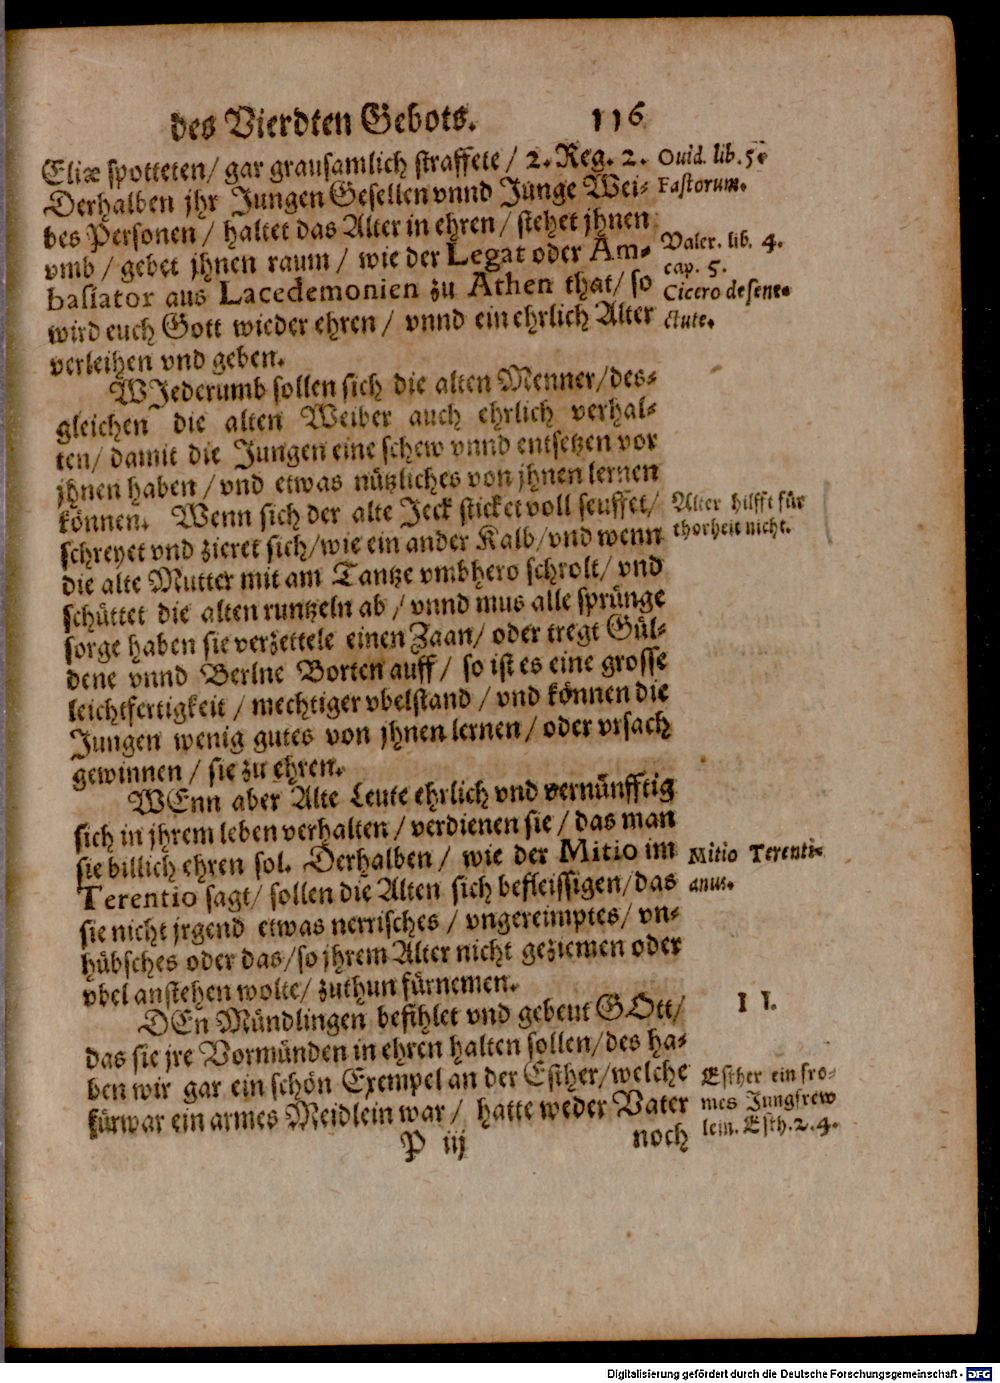 des Vierdten Gebots. 116
Eliæ spotteten/ gar grausamlich straffete / 2. Reg. 2.
Derhalben jhr Jungen Gesellen vnnd Junge Wei-
bes Personen / haltet das Alter in ehren / stehet jhnen
vmb / gebet jhnen raum / wie der Legat oder Am-
basiator aus Lacedemonien zu Athen that/ so
wird euch Gott wieder ehren / vnnd ein ehrlich Alter
verleihen vnd geben.
Ouid. lib. 5.
Fastorum.
Valer. lib. 4.
cap. 5.
Cicero de sene-
ctute.
WJederumb sollen sich die alten Menner/des-
gleichen die alten Weiber auch ehrlich verhal-
ten/ damit die Jungen eine schew vnnd entsetzen vor
jhnen haben / vnd etwas nützliches von jhnen lernen
können. Wenn sich der alte Jeck sticket voll seuffet/
schreyet vnd zieret sich/wie ein ander Kalb/vnd wenn
die alte Mutter mit am Tantze vmbhero schrolt/ vnd
schüttet die alten runtzeln ab / vnnd mus alle sprünge
sorge haben sie verzettele einen Zaan/ oder tregt Gül-
dene vnnd Berlne Borten auff / so ist es eine grosse
leichtfertigkeit / mechtiger vbelstand / vnd können die
Jungen wenig gutes von jhnen lernen / oder vrsach
gewinnen / sie zu ehren.
Alter hilfft für
thorheit nicht.
WEnn aber Alte Leute ehrlich vnd vernünfftig
sich in jhrem leben verhalten / verdienen sie / das man
sie billich ehren sol. Derhalben / wie der Mitio im
Terentio sagt/ sollen die Alten sich befleissigen/das
sie nicht jrgend etwas nerrisches / vngereimptes/ vn-
hübsches oder das/so jhrem Alter nicht geziemen oder
vbel anstehen wolte/ zuthun fürnemen.
Mitio Terenti-
anus.
DEn Mündlingen befihlet vnd gebeut GOtt/
das sie jre Vormünden in ehren halten sollen/des ha-
ben wir gar ein schön Exempel an der Esther/welche
fürwar ein armes Meidlein war / hatte weder Vater
II.
Esther ein fro-
mes Jungfrew
lein. Esth. 2. 4.
P iij noch
Digitalisierung gefördert durch die Deutsche Forschungsgemeinschaft - DFG